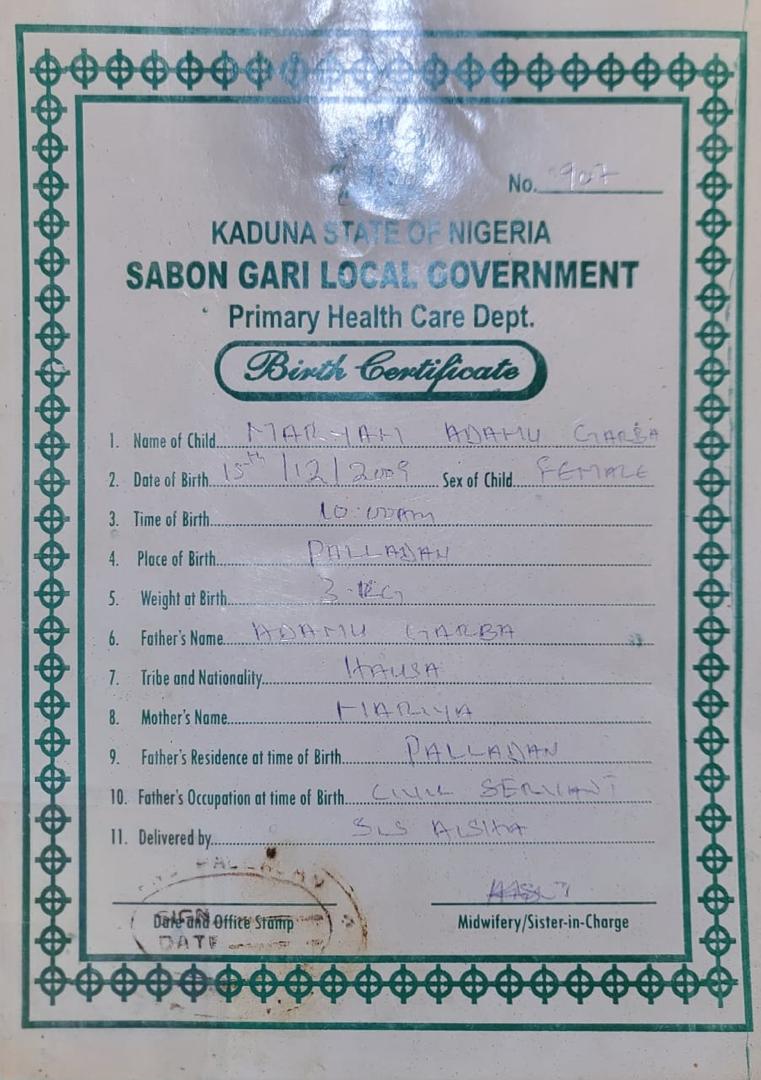 No. 907
KADUNA STATE OF NIGERIA
SABON GARI LOCAL GOVERNMENT
Primary Health Care Dept.
Birth Certificate
1. Name of Child MARYAM ADAMU GARBA
2. Date of Birth 15th/12/2009 Sex of Child FEMALE
3. Time of Birth 10:00AM
4. Place of Birth PALLADAN
5. Weight at Birth 3.KG
6. Father's Name ADAMU GARBA
7. Tribe and Nationality HAUSA
8. Mother's Name MARIYA
9. Father's Residence at time of Birth PALLADAN
10. Father's Occupation at time of Birth CIVIL SERVANT
11. Delivered by
PALLADAN
SIGN
Date and Office Stamp Midwifery/Sister-in-Charge
DATE